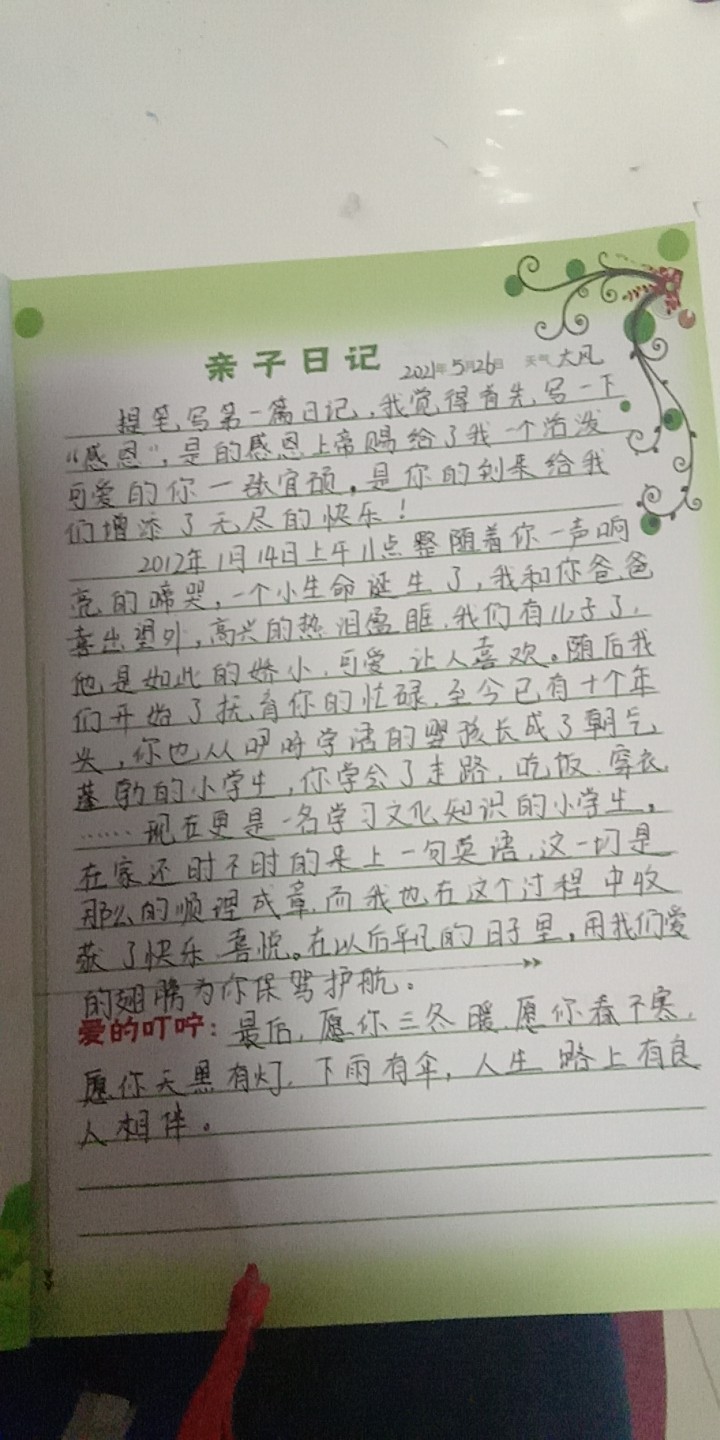 亲子日记 2021年5月26日 天气 大风
提笔写第一篇日记，我觉得首先写一下
“感恩”，是的感恩上帝赐给了我一个活泼
可爱的你一张宜硕，是你的到来给我
们增添了无尽的快乐！
2012年1月14日上午11点整随着你一声响
亮的啼哭，一个小生命诞生了，我和你爸爸
喜出望外，高兴的热泪盈眶，我们有儿子了，
他是如此的娇小、可爱、让人喜欢。随后我
们开始了抚育你的忙碌，至今已有十个年
头，你也从咿呀学语的婴孩长成了朝气
蓬勃的小学生，你学会了走路、吃饭、穿衣
……现在更是一名学习文化知识的小学生。
在家还时不时的来上一句英语，这一切是
那么的顺理成章，而我也在这个过程中收
获了快乐、喜悦。在以后平凡的日子里，用我们爱
的翅膀为你保驾护航。
爱的叮咛：最后，愿你三冬暖，愿你春不寒，
愿你天黑有灯，下雨有伞，人生路上有良
人相伴。